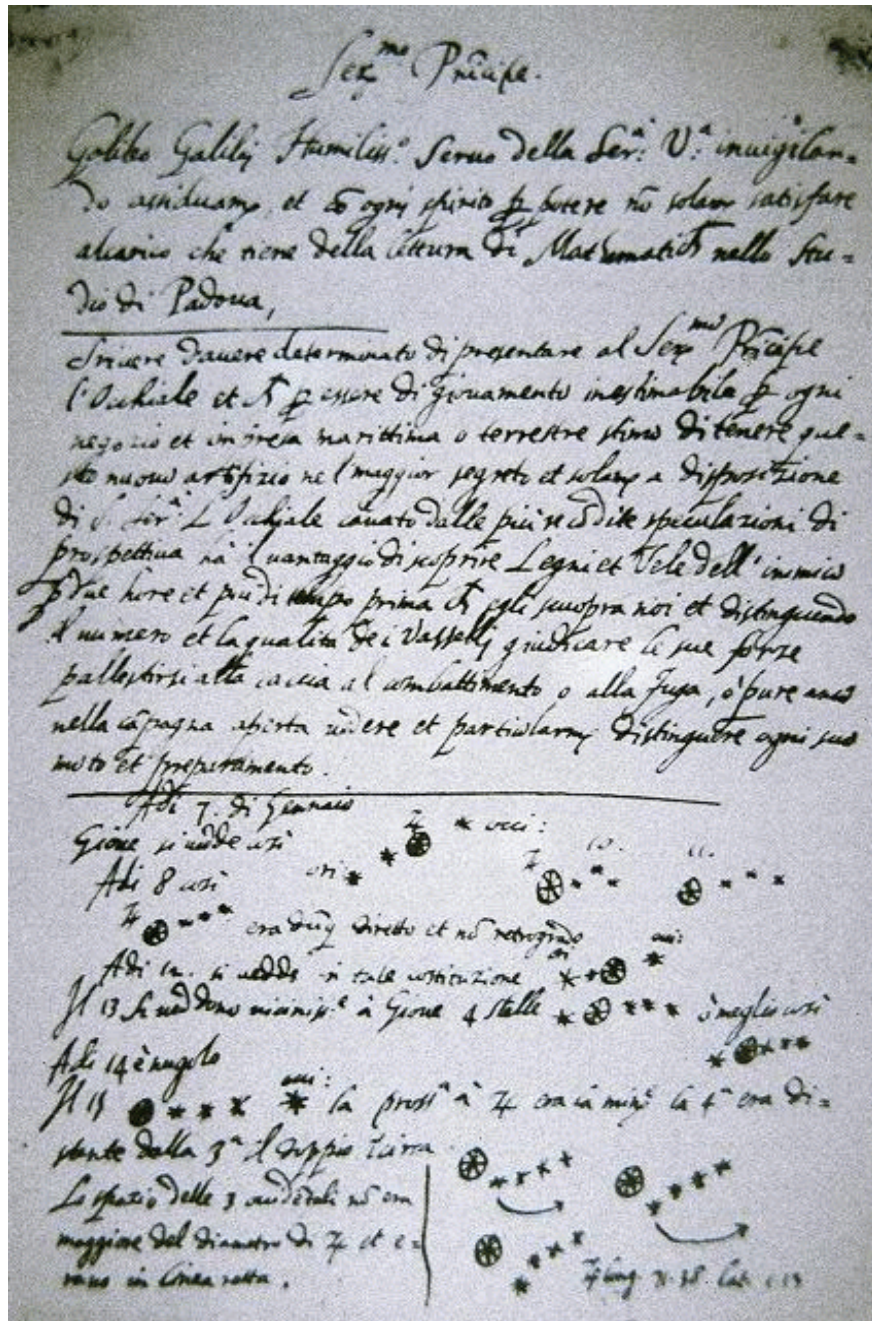 Ser.mo Principe.
Galileo Galilej Humiliss.o Servo della Ser.a V.a invigilan=
do assiduam.te et cõ ogni spirito ꝑ potere nõ solam.te satisfare
alcarico che tiene della lettura di Mathematich nello Stu=
dio di Padova,
Scrivere davere determinato di presentare al Ser.mo Principe
l'Occhiale et ꝑ essere di giovamento inestimabile ꝑ ogni
negozio et impresa marittima o terrestre stimo di tenere que=
sto nuovo artifizio nel maggior segreto et solam.te a disposizione
di S. Ser.a L'Occhiale cavato dalle più recõdite speculazioni di
prospettiva hà il vantaggio di scoprire Legni et Vele dell'inimico
ꝑ due hore et più di tempo prima egli scuopra noi et distinguendo
il numero et la qualità dei Vasselli giudicare le sue forze
pallestirsi alla caccia al combattimento o alla fuga, ò pure anco
nella cãpagna aperta vedere et particolarm.te distinguere ogni suo
moto et preparamento.
Adi 7. di Gennaio
Giove si vede così ♃ occi:
Adi 8 così ori ♃ 10. 11.
♃ era dũq diretto et nõ retrogrado
Adi 12. si vedde in tale costituzione ori occi:
Il 13 si veddono viciniss.e à Giove 4 stelle ò meglio così
Adi 14 è nugolo
Il 15 occi: la pross.a à ♃ era la min.e la 4.a era di=
stante dalla 3.a il doppio circa
Lo spazio delle 3 occidẽtali nõ era
maggiore del diametro di ♃ et e=
rano in linea retta.
♃ long. 71.38 Lat. 1.13